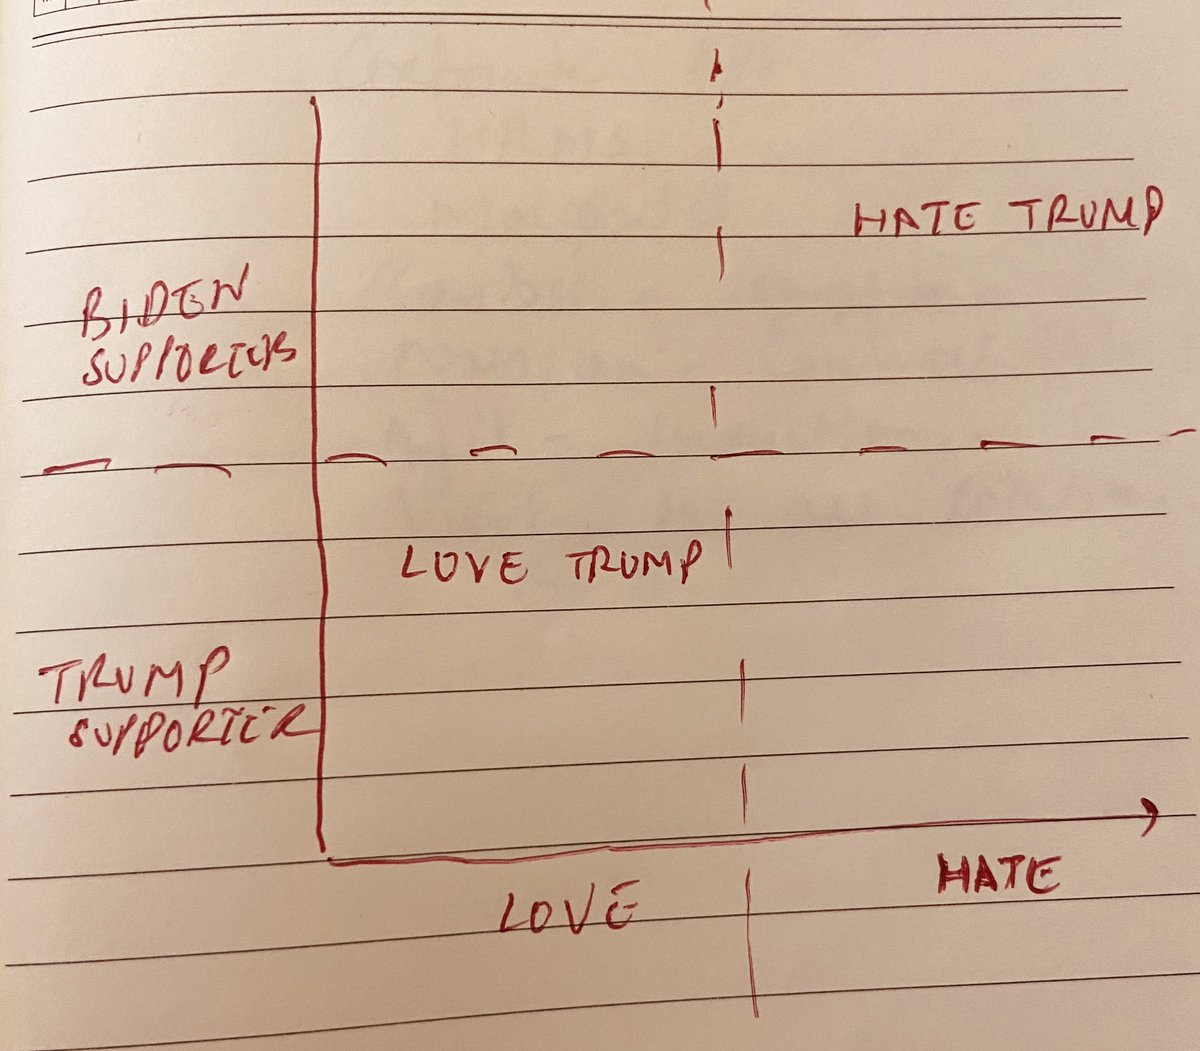 HATE TRUMP
BIDEN
SUPPORTERS
LOVE TRUMP
TRUMP
SUPPORTER
HATE
LOVE